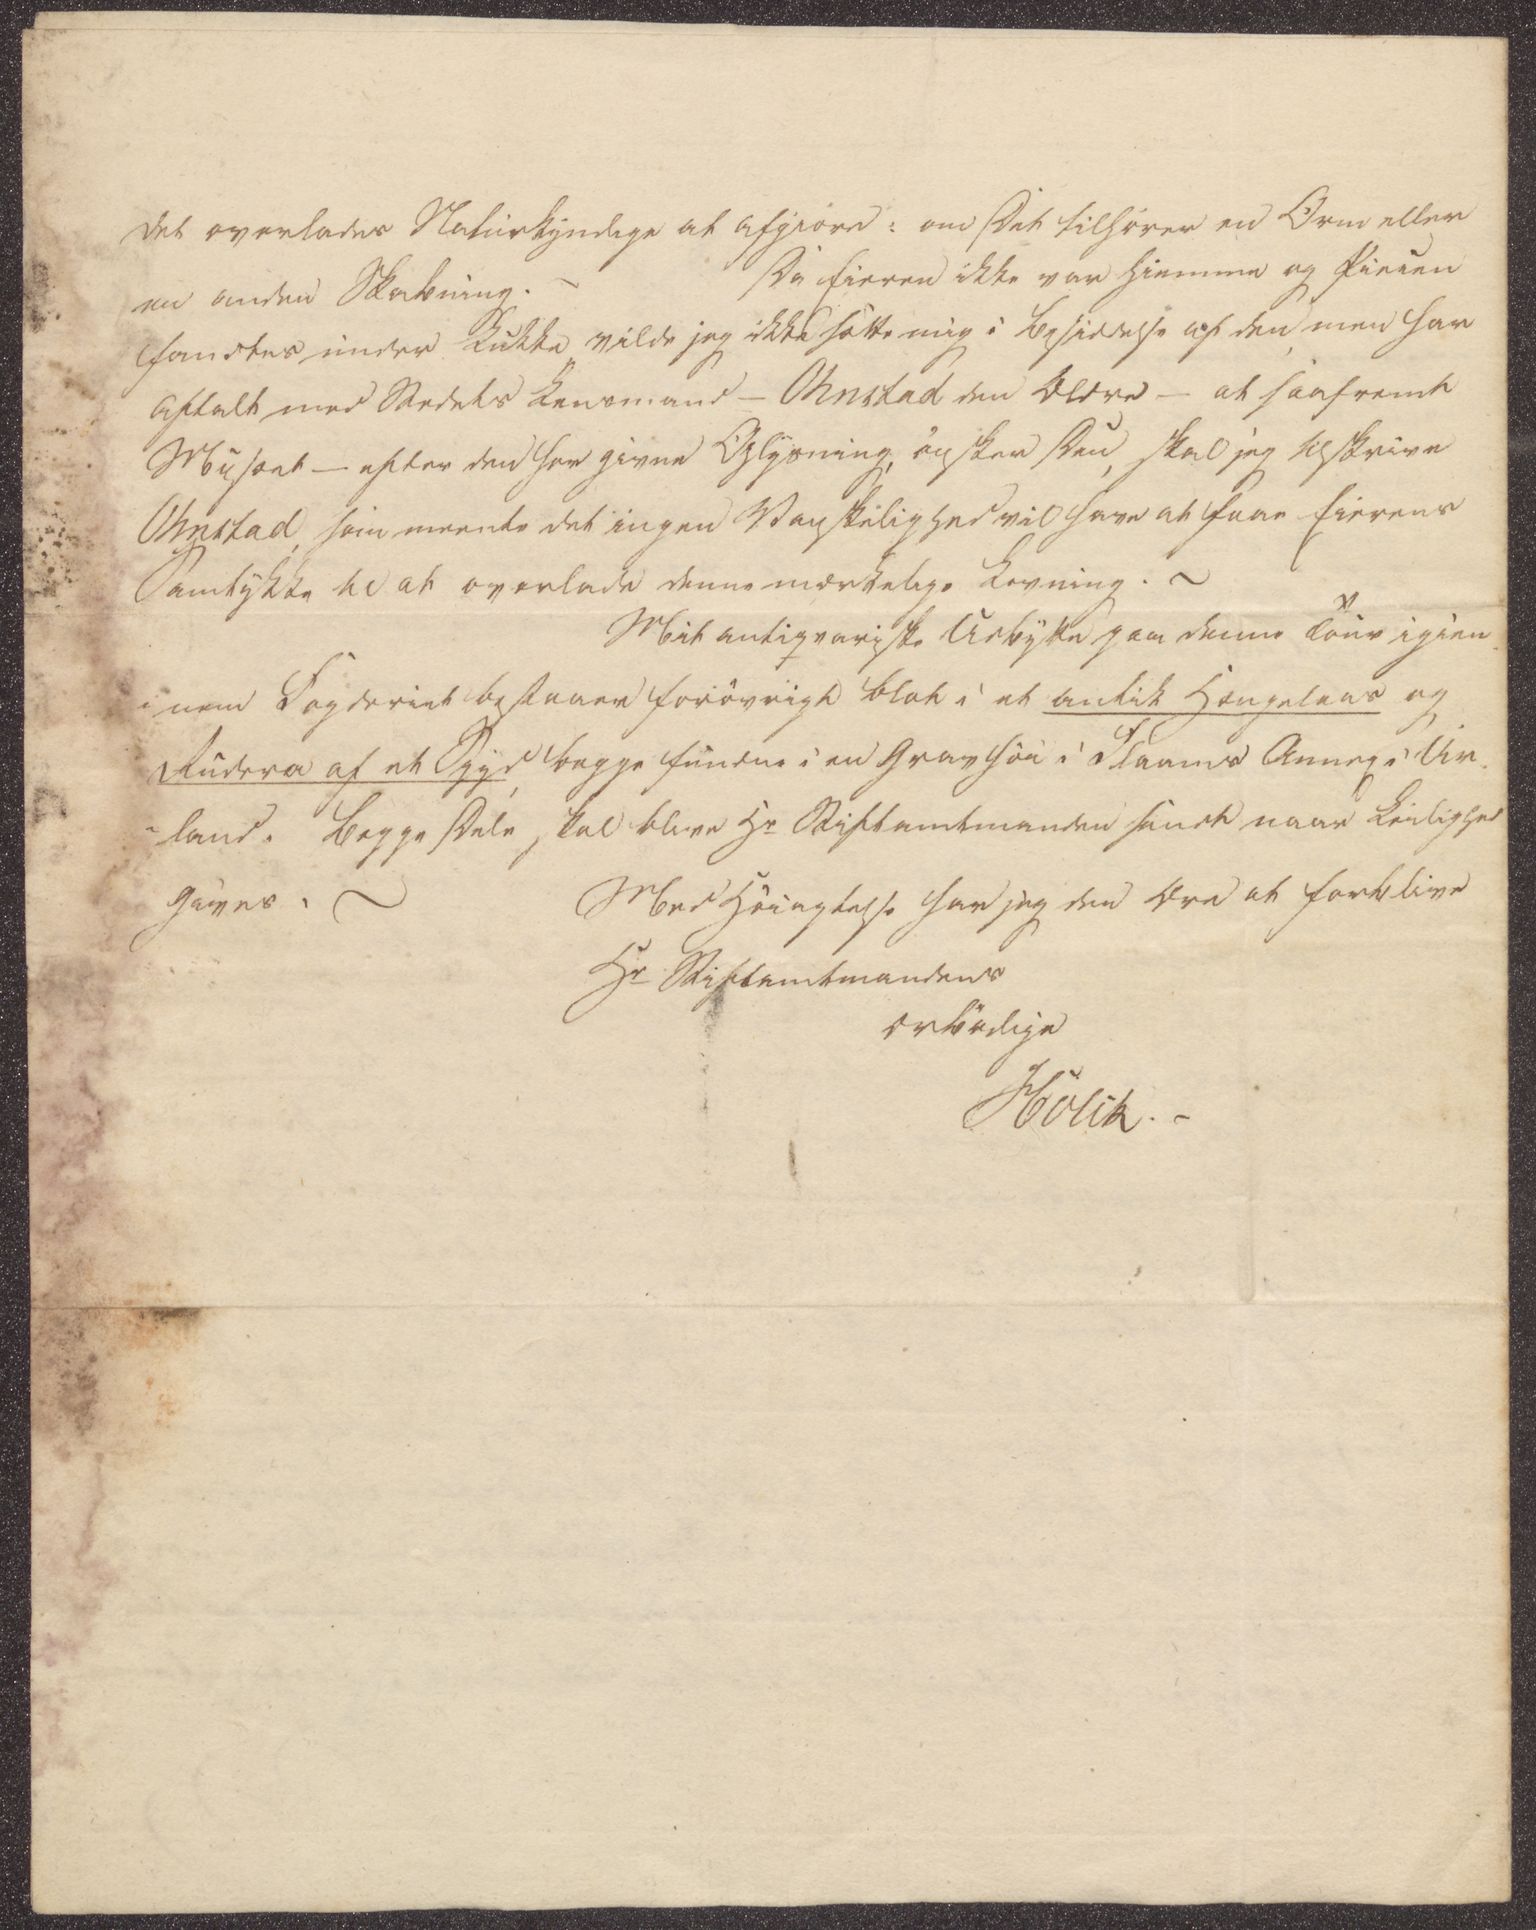 det overlades Naturkyndige at afgiøre: om Det tilhører en Orm eller
en anden Skabning. ~ Da Eieren ikke var hiemme og Piecen
fandtes under Lukke, vilde jeg ikke sætte mig i Besiddelse af den, men har
aftalt med Stedets Lensmand — Ohnstad den Ældre — at saafremt
Musæet — efter den her givne Oplysning, ønsker Den, skal jeg tilskrive
Ohnstad, som meente det ingen Vanskelighed vil have at faae Eierens
Samtykke til at overlade denne mærkelige Levning. ~
Mit antiqvariske Udbytte paa denne Tour igien
nem Fogderiet bestaaer forøvrigt blot i et antik Hængelaas og
Rudera af et Spyd, begge fundne i en Gravhøi i Flaams Annex i Ur-
land. Begge Dele skal blive Hr Stiftamtmanden sendt naar Leilighed
gives. ~ Med Høiagtelse har jeg den Ære at forblive
Hr Stiftamtmandens
ærbødige